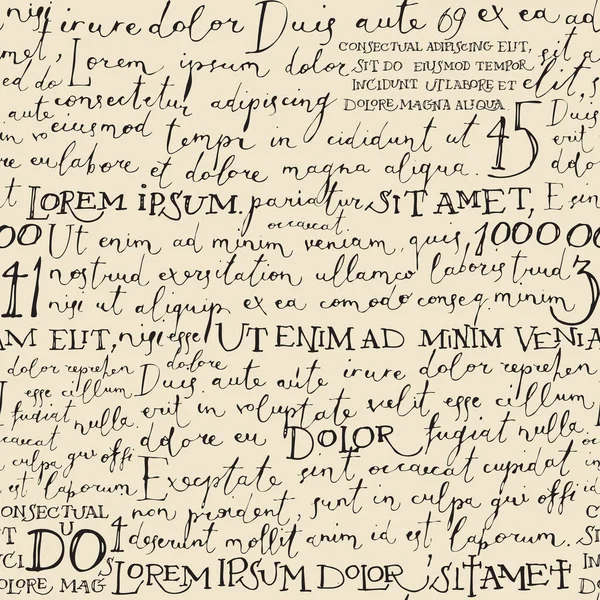 nisi irure dolor Duis aute 69 ex ea ad
Lorem ipsum dolor
CONSECTUAL ADIPISCING ELIT,
SIT DO EIUSMOD TEMPOR
INCIDUNT UTLABORE ET
DOLORE MAGNA ALIQUA
sit a
elit, s
met,
ed do
consectetur adipiscing
aute
eiusmod tempr in cididunt ut 45
Duis
erit
ddo
re eulabore et dolore magna aliqua.
t LOREM IPSUM, pariatur SIT AMET, E sin
occaecat
00 Ut enim ad minim veniam, quis, 1000 00
41 nostrud exersitation ullamco laboris trud 3
nisi ut aliquip ex ea comodo conseq minim
AM ELIT, nisi esse UT ENIM AD MINIM VENIA
dolor reprehen dolore
Duis aute aute irure dolor reprehen
esse cillum
fugiat nulla.
erit in voluptate velit esse cillum
ddore eu DOLOR fugiat nulla.
caecat
culpa qui offi
est laborum
Exceptate sint occaecat cupidat
non proident, sunt in culpa qui offi
CONSECTUAL
T U
DO
CI
OLORE MAG
1 deserunt mollit anim id est laborum.
LOREM IPSUM DOLOR, SIT AMET